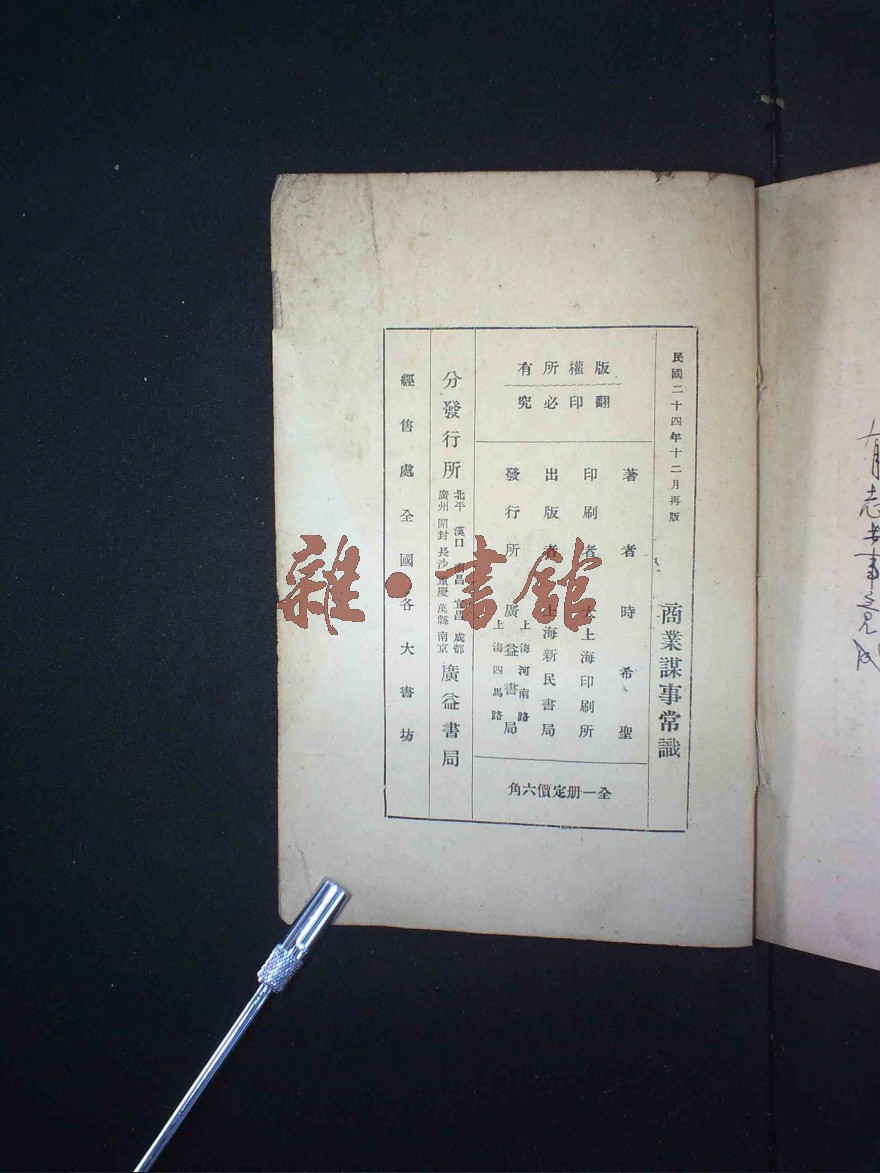 民國二十四年十二月再版
商業謀事常識
版權所有
翻印必究
著者 時希聖
印刷者 大上海印刷所
出版者 上海新民書局
發行所 廣益書局
上海河南路
上海四馬路
全一册定價六角
分發行所
北平 漢口 南昌 宜昌 成都
廣州 開封 長沙 重慶 萬縣 南京
廣益書局
經售處全國各大書坊
雜·書館